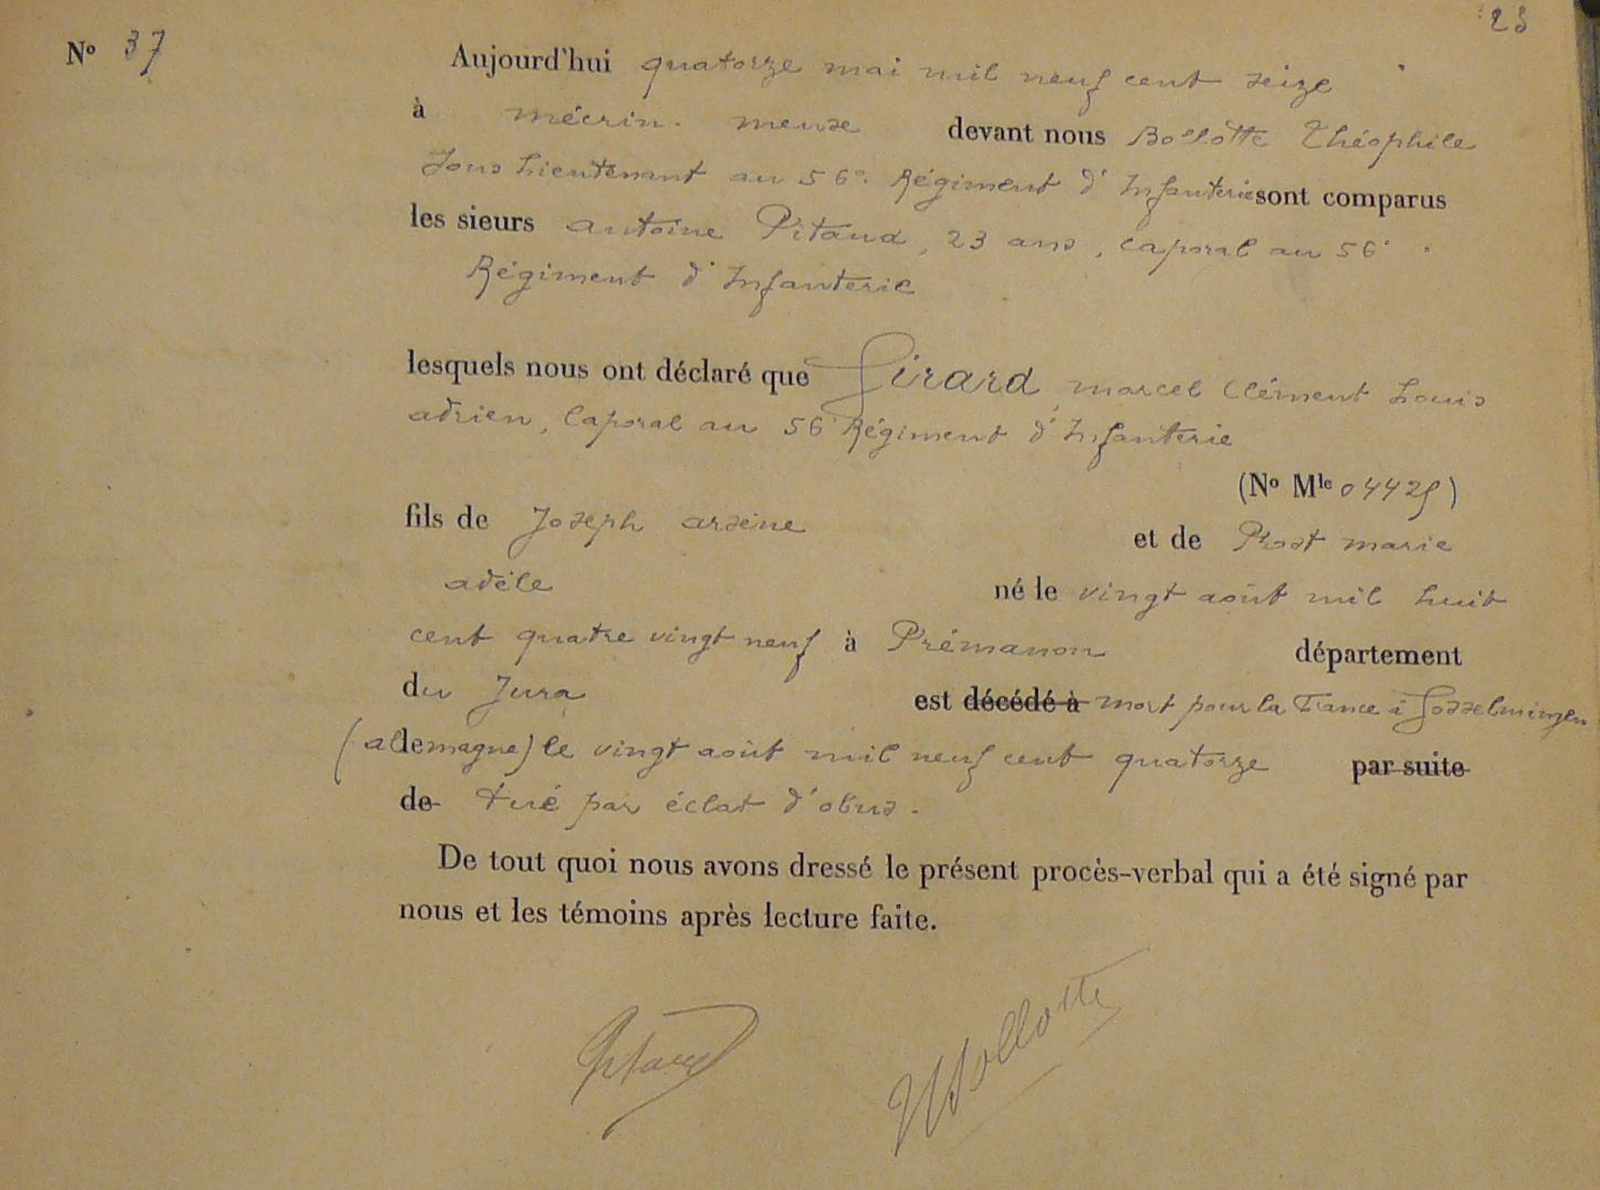 23
N° 37
Aujourd'hui quatorze mai mil neuf cent seize
à mécrin. meuse devant nous Bollotte Théophile
Sous Lieutenant au 56e. Régiment d'Infanterie sont comparus
les sieurs antoine Pitaud, 23 ans, caporal au 56e
Régiment d'Infanterie
lesquels nous ont déclaré que Girard, marcel Clément Louis
adrien, Caporal au 56e Régiment d'Infanterie
(N° Mle 04425)
fils de Joseph arsène et de Prost marie
adèle né le vingt août mil huit
cent quatre vingt neuf à Prémanon département
du Jura est décédé à mort pour la France à Gosselmingen
(allemagne) le vingt août mil neuf cent quatorze par suite
de tué par éclat d'obus.
De tout quoi nous avons dressé le présent procès-verbal qui a été signé par
nous et les témoins après lecture faite.
Pitaud Bollotte